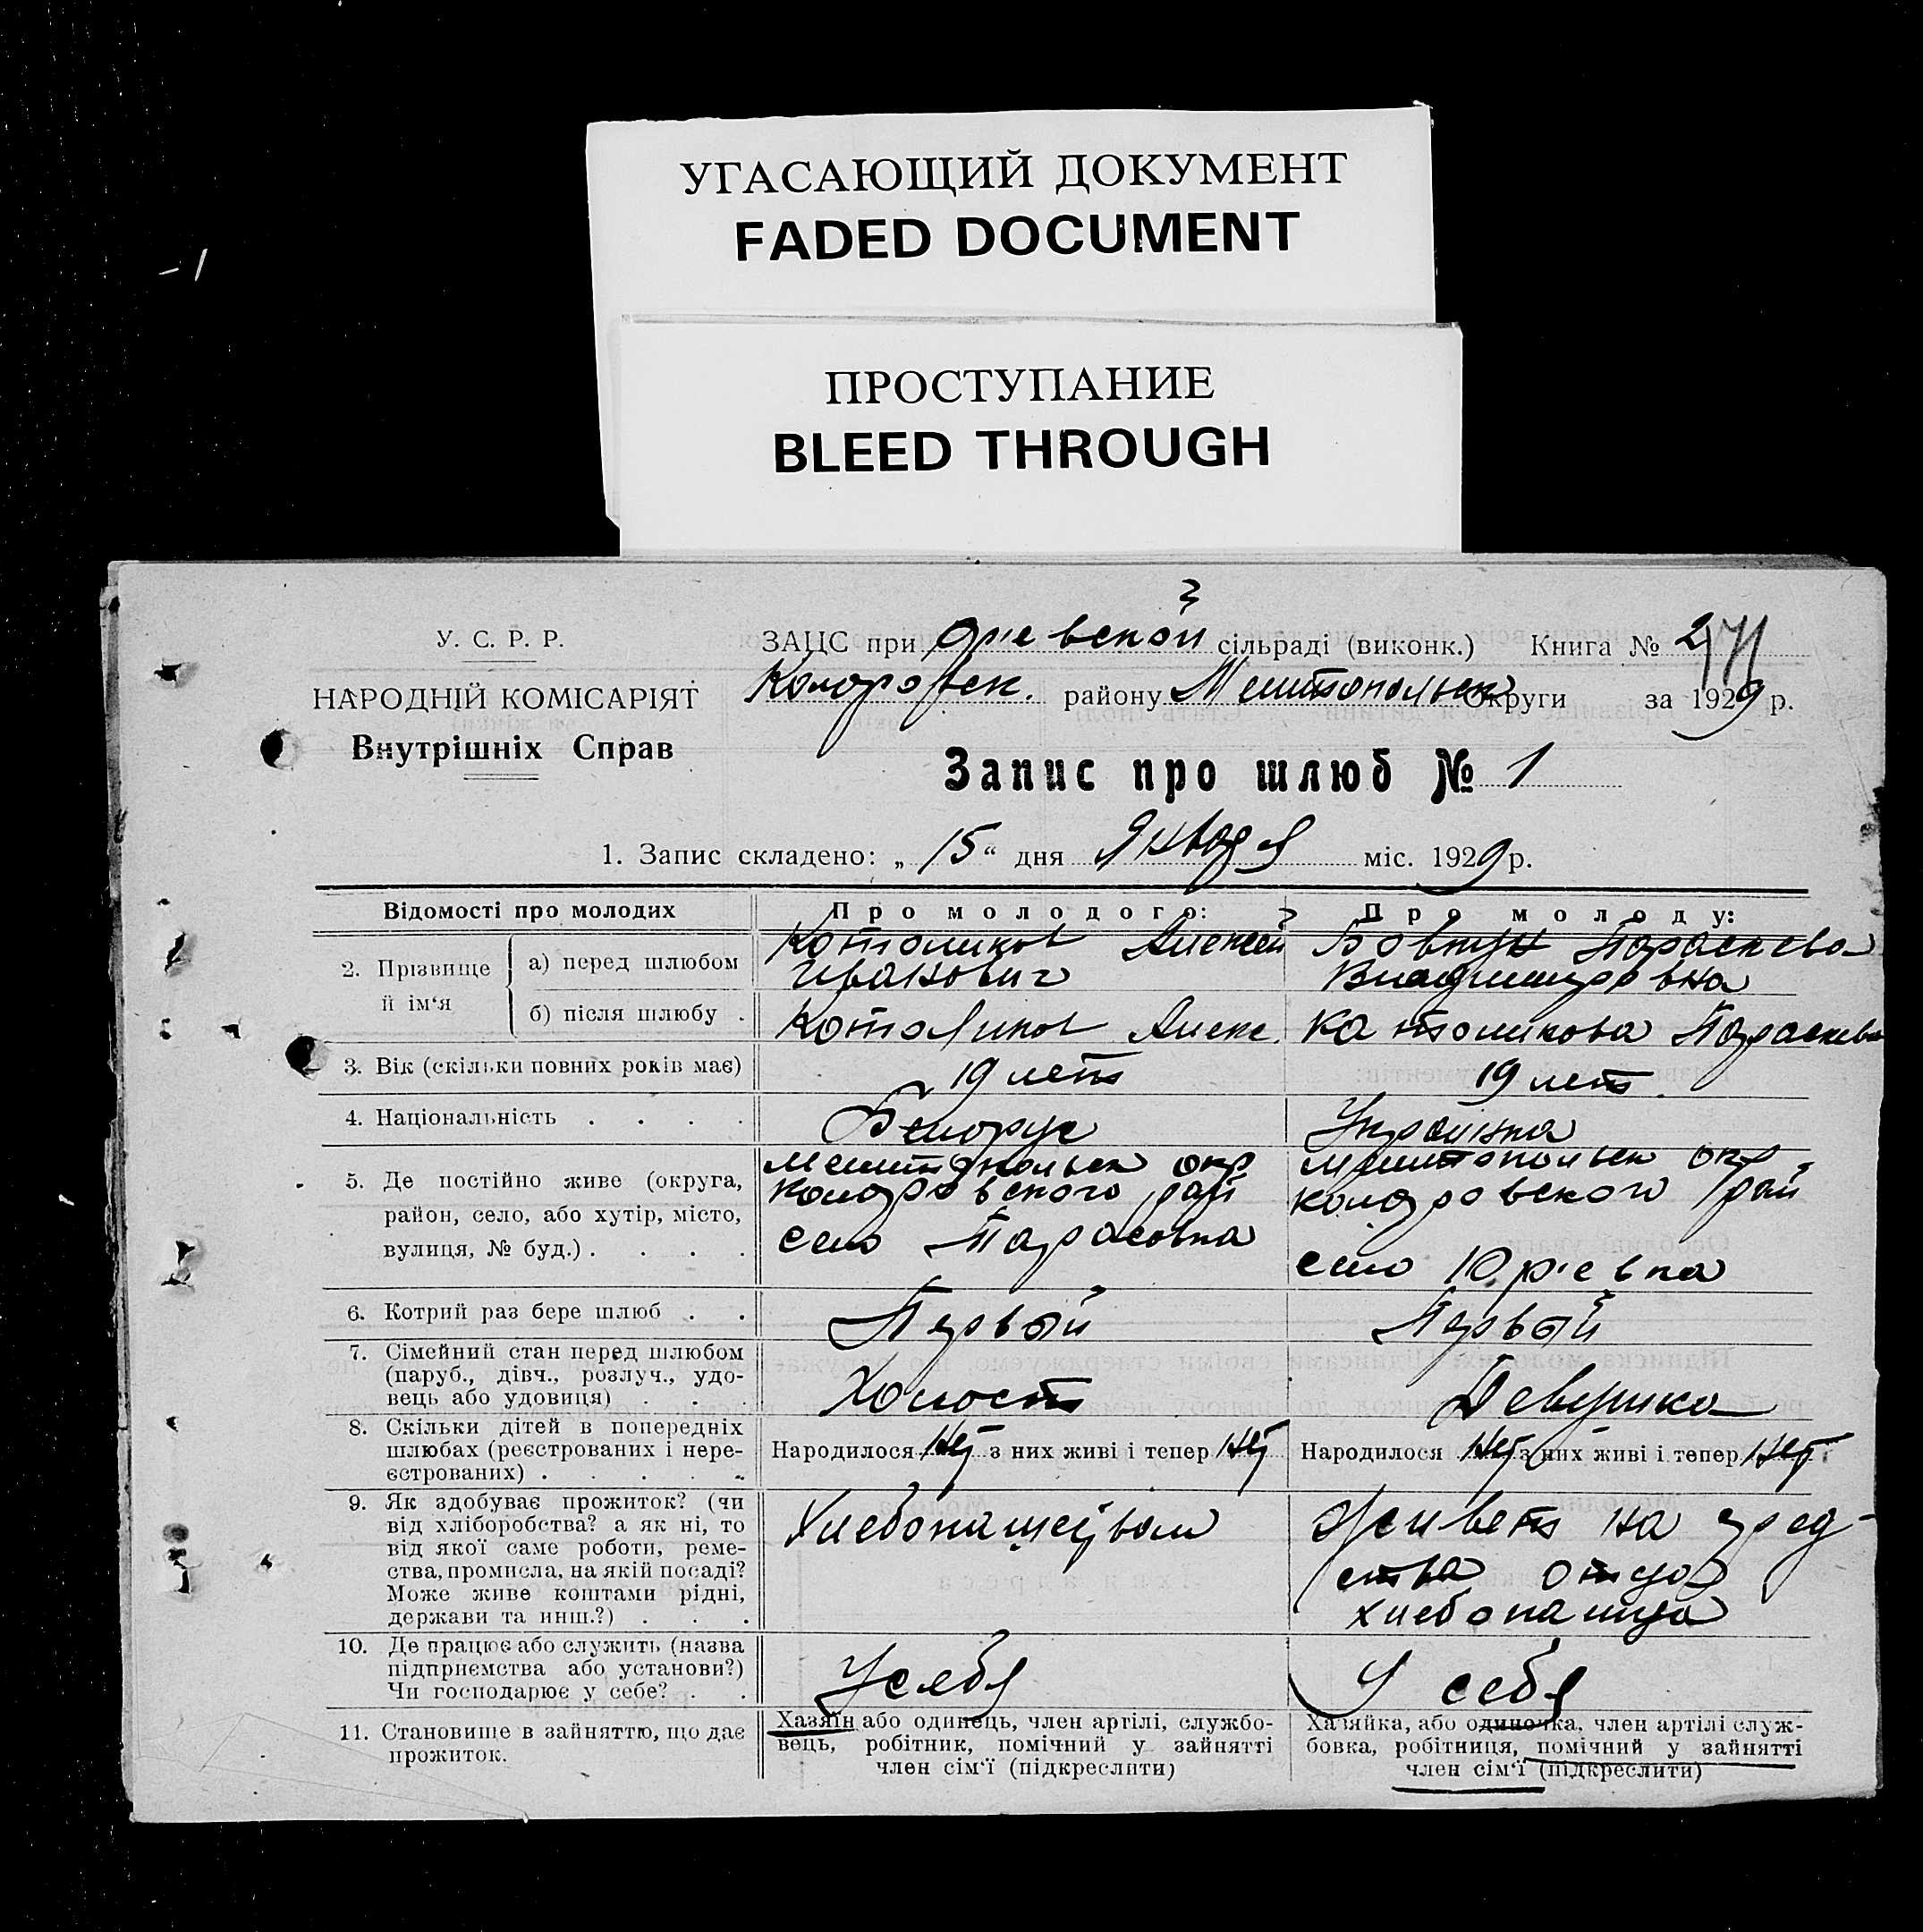 УГАСАЮЩИЙ ДОКУМЕНТ
FADED DOCUMENT
ПРОСТУПАНИЕ
BLEED THROUGH
У. С. Р. Р.
НАРОДНІЙ КОМІСАРІЯТ
Внутрішніх Справ
ЗАЦС при сільраді (виконк.) Книга №
району Округи за 1929 р.
Запис про шлюб № 1
1. Запис складено: „ 15 “ дня Января міс. 1929 р.
Відомості про молодих
Про молодого:
Про молоду:
2. Прізвище й ім‘я
а) перед шлюбом
Котоликов Алексей Иванович
Бовтун Параскева Владимировна
б) після шлюбу .
Котоликов Алекс.
Котоликова Параскева
3. Вік (скільки повних років має)
19 лет
19 лет
4. Національність . . . .
Белорус
Українка
5. Де постійно живе (округа,
район, село, або хутір, місто,
вулиця, № буд.) . . . .
окр
рай
село Тарасовка
окр
рай
село Юр'евка
6. Котрий раз бере шлюб . .
Первый
Первый
7. Сімейний стан перед шлюбом
(паруб., дівч., розлуч., удо-
вець або удовиця) . . .
Холост
Девушка
8. Скільки дітей в попередніх
шлюбах (реєстрованих і нере-
єстрованих) . . . . .
Народилося нет з них живі і тепер нет
Народилося нет з них живі і тепер нет
9. Як здобуває прожиток? (чи
від хліборобства? а як ні, то
від якої саме роботи, реме-
ства, промисла, на якій посаді?
Може живе коштами рідні,
держави та инш.?) . . .
Хлебопашеством
Живет на сред-
ства отца
хлебопашца
10. Де працює або служить (назва
підприємства або установи?)
Чи господарює у себе? . .
У себя
У себя
11. Становище в зайняттю, що дає
прожиток.
Хазяїн або одинець, член артілі, службо-
вець, робітник, помічний у зайнятті
член сім‘ї (підкреслити)
Хазяйка, або одиночка, член артілі служ-
бовка, робітниця, помічний у зайнятті
член сім‘ї (підкреслити)